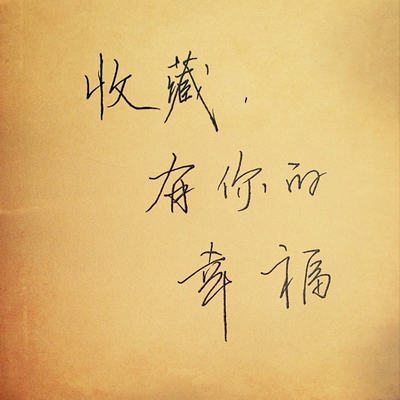 收藏.
有你的
幸福